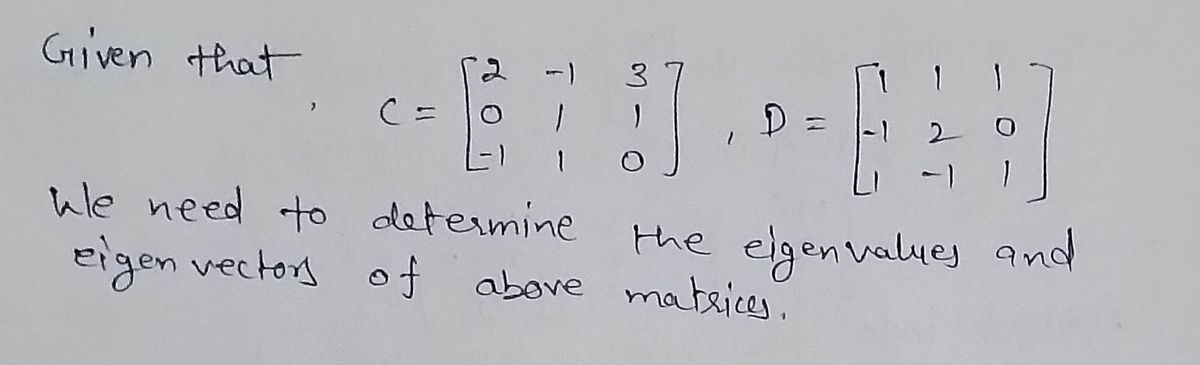 Given that,
C = [2 -1 3
0 1 1
-1 1 0], D = [1 1 1
-1 2 0
1 -1 1]
We need to determine the eigenvalues and
eigen vectors of above matrices.